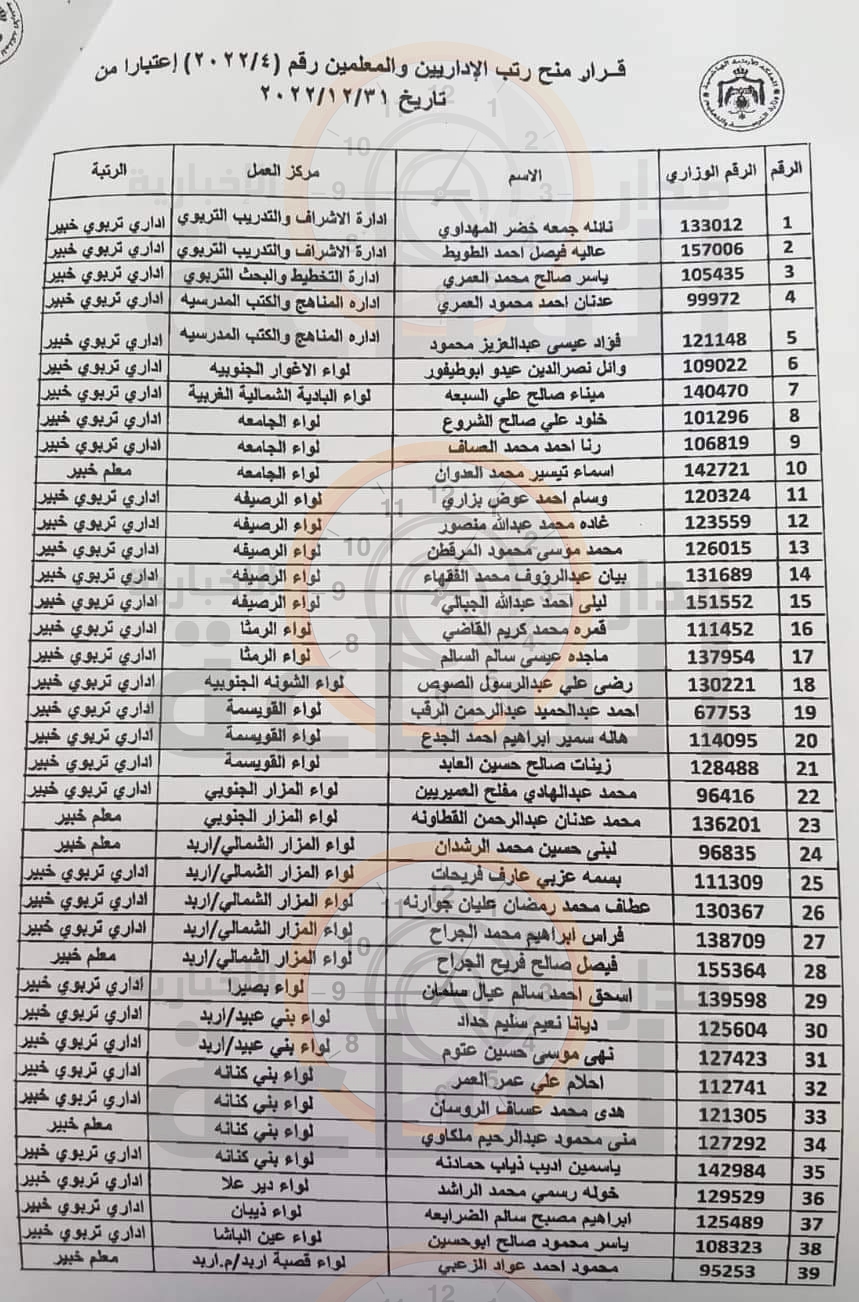 قـرار منح رتب الإداريين والمعلمين رقم (٢٠٢٢/٤) إعتبارا من
تاريخ ٢٠٢٢/١٢/٣١
الرقم الرقم الوزاري الاسم مركز العمل الرتبة
1 133012 نائله جمعه خضر المهداوي ادارة الاشراف والتدريب التربوي اداري تربوي خبير
2 157006 عاليه فيصل احمد الطويط ادارة الاشراف والتدريب التربوي اداري تربوي خبير
3 105435 ياسر صالح محمد العمري ادارة التخطيط والبحث التربوي اداري تربوي خبير
4 99972 عدنان احمد محمود العمري اداره المناهج والكتب المدرسيه اداري تربوي خبير
5 121148 فؤاد عيسى عبدالعزيز محمود اداره المناهج والكتب المدرسيه اداري تربوي خبير
6 109022 وائل نصرالدين عيدو ابوطيفور لواء الاغوار الجنوبيه اداري تربوي خبير
7 140470 ميناء صالح علي السبعه لواء البادية الشمالية الغربية اداري تربوي خبير
8 101296 خلود علي صالح الشروع لواء الجامعه اداري تربوي خبير
9 106819 رنا احمد محمد العساف لواء الجامعه اداري تربوي خبير
10 142721 اسماء تيسير محمد العدوان لواء الجامعه معلم خبير
11 120324 وسام احمد عوض بزاري لواء الرصيفه اداري تربوي خبير
12 123559 غاده محمد عبدالله منصور لواء الرصيفه اداري تربوي خبير
13 126015 محمد موسى محمود المرقطن لواء الرصيفه اداري تربوي خبير
14 131689 بيان عبدالرؤوف محمد الفقهاء لواء الرصيفه اداري تربوي خبير
15 151552 ليلى احمد عبدالله الجبالي لواء الرصيفه اداري تربوي خبير
16 111452 قمره محمد كريم القاضي لواء الرمثا اداري تربوي خبير
17 137954 ماجده عيسى سالم السالم لواء الرمثا اداري تربوي خبير
18 130221 رضى علي عبدالرسول الصوص لواء الشونه الجنوبيه اداري تربوي خبير
19 67753 احمد عبدالحميد عبدالرحمن الرقب لواء القويسمة اداري تربوي خبير
20 114095 هاله سمير ابراهيم احمد الجدع لواء القويسمة اداري تربوي خبير
21 128488 زينات صالح حسين العابد لواء القويسمة اداري تربوي خبير
22 96416 محمد عبدالهادي مفلح العميريين لواء المزار الجنوبي اداري تربوي خبير
23 136201 محمد عدنان عبدالرحمن القطاونه لواء المزار الجنوبي معلم خبير
24 96835 لبنى حسين محمد الرشدان لواء المزار الشمالي/اربد معلم خبير
25 111309 بسمه عزبي عارف فريحات لواء المزار الشمالي/اربد اداري تربوي خبير
26 130367 عطاف محمد رمضان عليان جوارنه لواء المزار الشمالي/اربد اداري تربوي خبير
27 138709 فراس ابراهيم محمد الجراح لواء المزار الشمالي/اربد اداري تربوي خبير
28 155364 فيصل صالح فريح الجراح لواء المزار الشمالي/اربد معلم خبير
29 139598 اسحق احمد سالم عيال سلمان لواء بصيرا اداري تربوي خبير
30 125604 ديانا نعيم سليم حداد لواء بني عبيد/اربد اداري تربوي خبير
31 127423 نهى موسى حسين عتوم لواء بني عبيد/اربد اداري تربوي خبير
32 112741 احلام علي عمر العمر لواء بني كنانه اداري تربوي خبير
33 121305 هدى محمد عساف الروسان لواء بني كنانه اداري تربوي خبير
34 127292 منى محمود عبدالرحيم ملكاوي لواء بني كنانه معلم خبير
35 142984 ياسمين اديب ذياب حمادنه لواء بني كنانه اداري تربوي خبير
36 129529 خوله رسمي محمد الراشد لواء دير علا اداري تربوي خبير
37 125489 ابراهيم مصبح سالم الضرابعه لواء ذيبان اداري تربوي خبير
38 108323 ياسر محمود صالح ابوحسين لواء عين الباشا اداري تربوي خبير
39 95253 محمود احمد عواد الزعبي لواء قصبة اربد/م.اربد معلم خبير
مدار الساعة الإخبارية